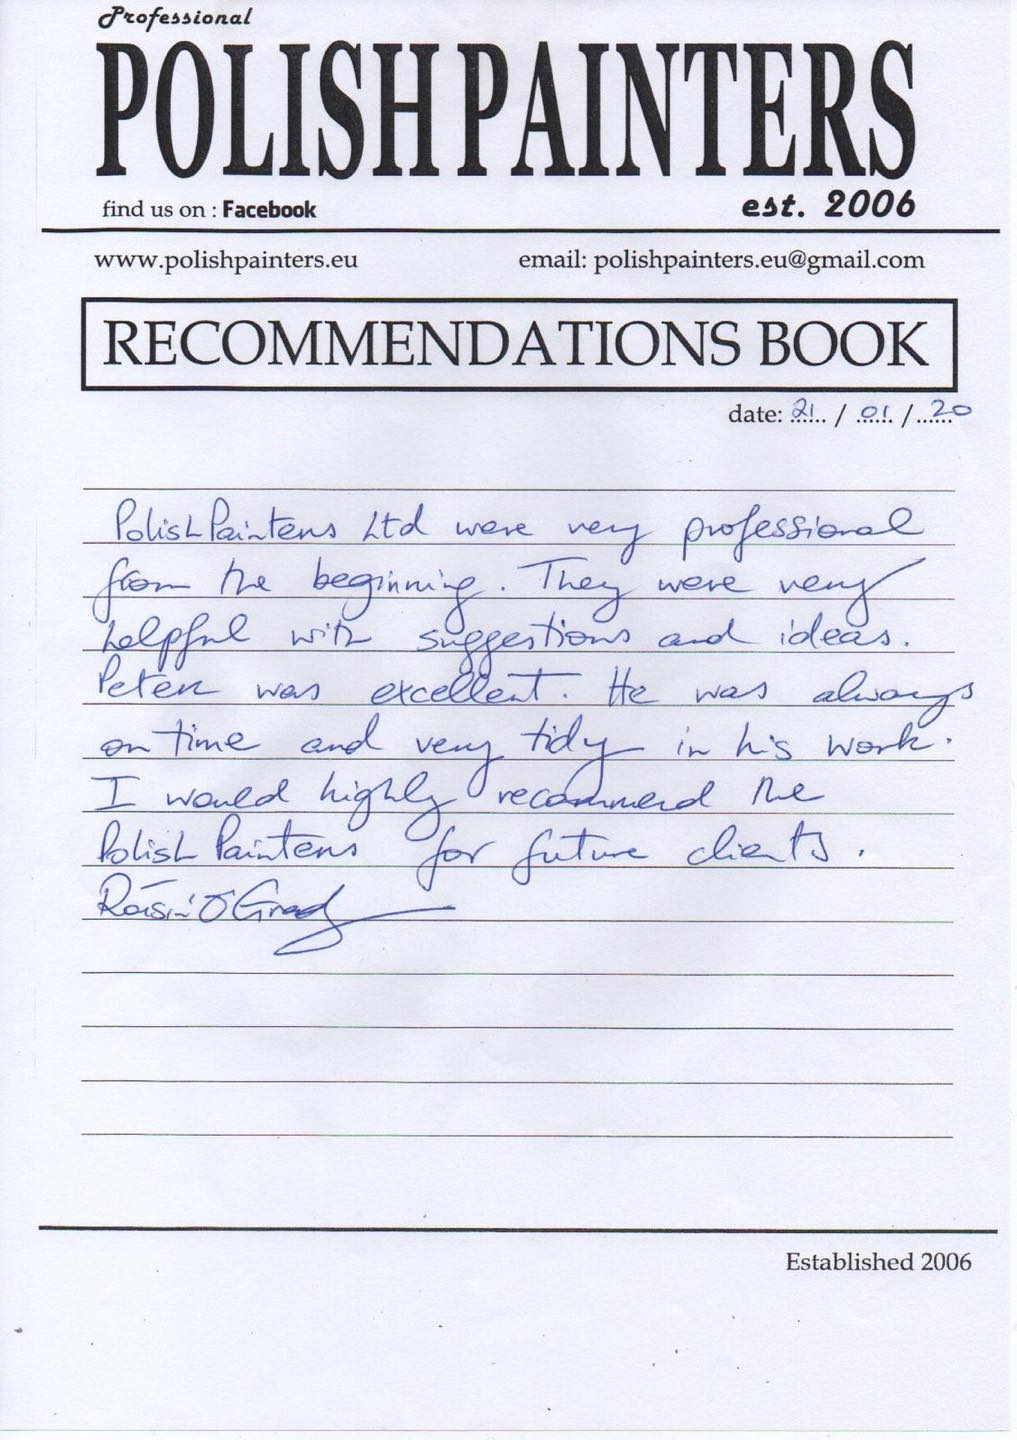 Professional
POLISH PAINTERS
find us on : Facebook est. 2006
www.polishpainters.eu email: polishpainters.eu@gmail.com
RECOMMENDATIONS BOOK
date: 21 / 01 / 20
Polish Painters Ltd were very professional
from the beginning. They were very
helpful with suggestions and ideas.
Peter was excellent. He was always
on time and very tidy in his work.
I would highly recommend the
Polish Painters for future clients.
Róisín O'Grady
Established 2006